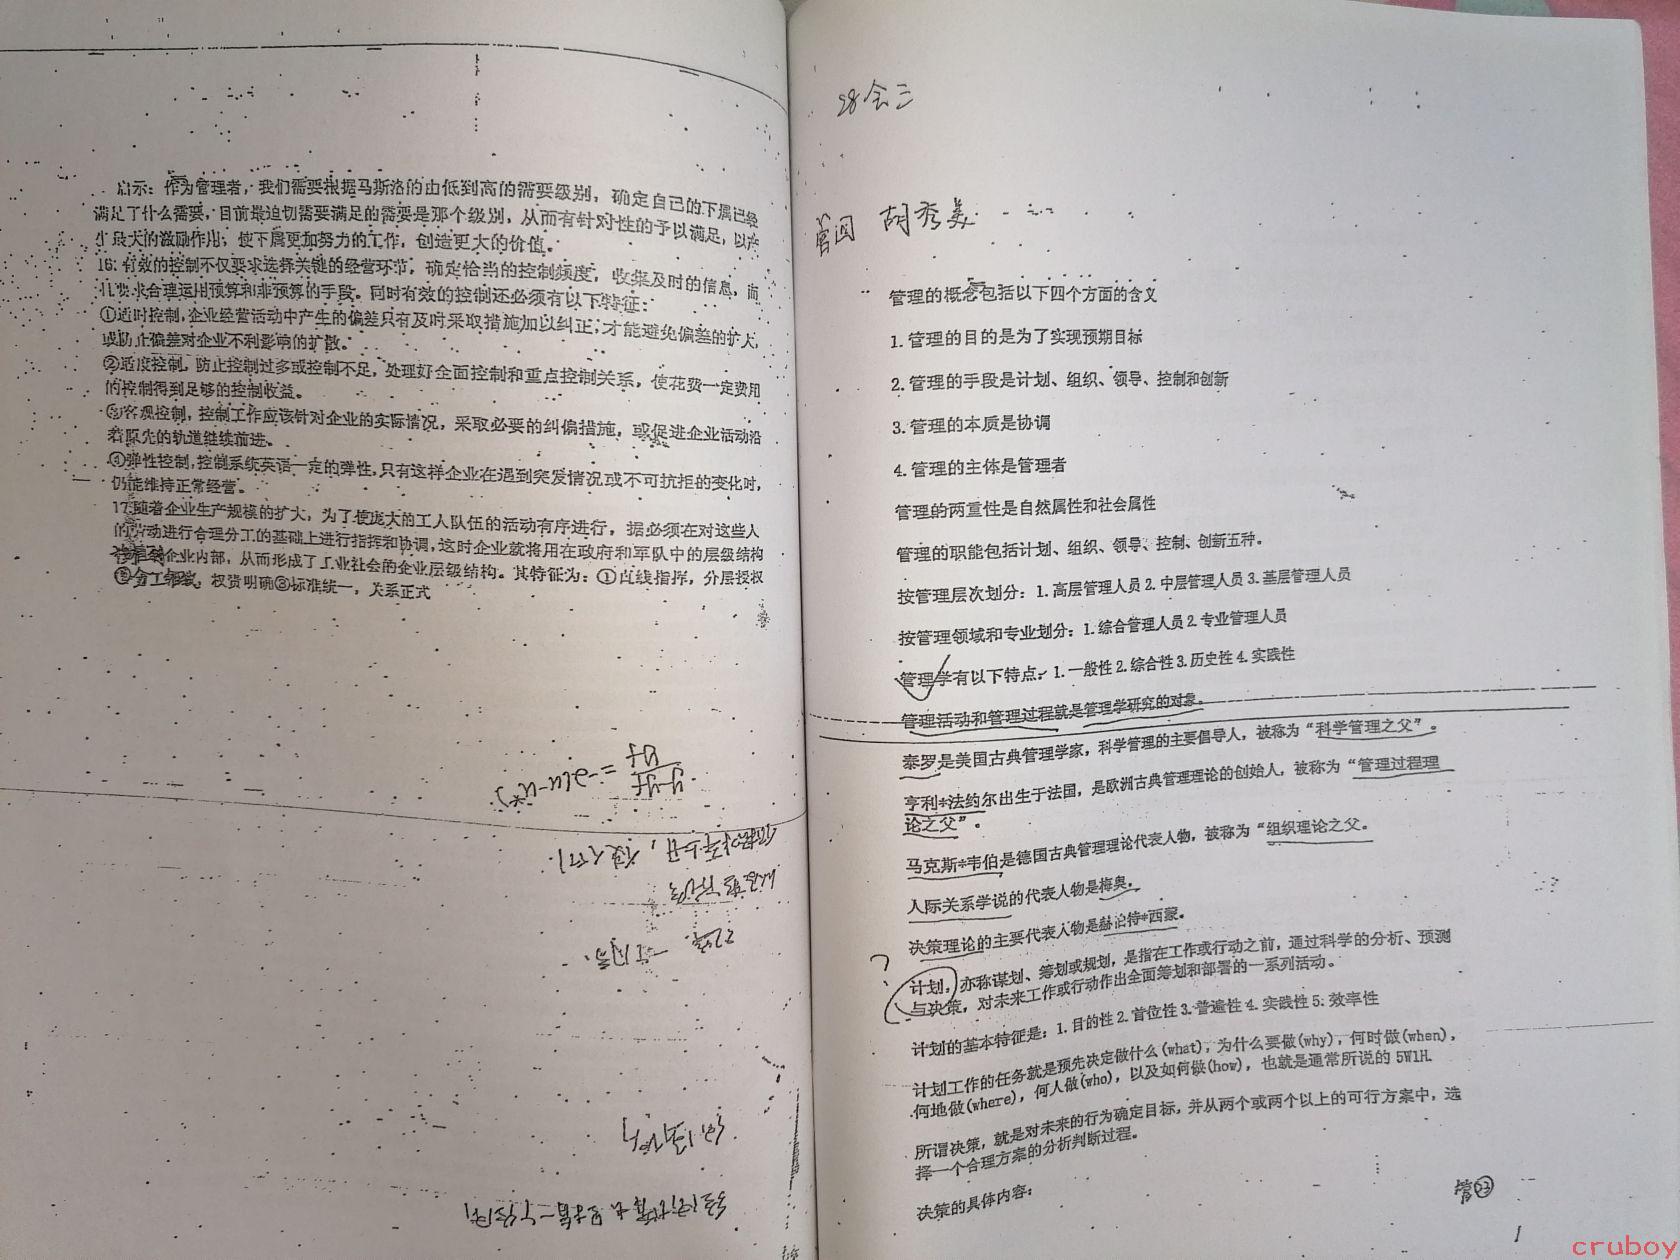 启示：作为管理者，我们需要根据马斯洛的由低到高的需要级别，确定自己的下属已经
满足了什么需要，目前最迫切需要满足的需要是那个级别，从而有针对性的予以满足，以产
生最大的激励作用；使下属更加努力的工作，创造更大的价值。
16：有效的控制不仅要求选择关键的经营环节，确定恰当的控制频度，收集及时的信息，而
且要求合理运用预算和非预算的手段。同时有效的控制还必须有以下特征：
①适时控制，企业经营活动中产生的偏差只有及时采取措施加以纠正，才能避免偏差的扩大，
或防止偏差对企业不利影响的扩散。
②适度控制，防止控制过多或控制不足，处理好全面控制和重点控制关系，使花费一定费用
的控制得到足够的控制收益。
③客观控制，控制工作应该针对企业的实际情况，采取必要的纠偏措施，或促进企业活动沿
着原先的轨道继续前进。
④弹性控制，控制系统英语一定的弹性，只有这样企业在遇到突发情况或不可抗拒的变化时，
仍能维持正常经营。
17随着企业生产规模的扩大，为了使庞大的工人队伍的活动有序进行，据必须在对这些人
的劳动进行合理分工的基础上进行指挥和协调，这时企业就将用在政府和军队中的层级结构
企业内部，从而形成了工业社会的企业层级结构。其特征为：①直线指挥，分层授权
②分工 权责明确③标准统一，关系正式
28会三
管四 胡秀美
管理的概念包括以下四个方面的含义
1.管理的目的是为了实现预期目标
2.管理的手段是计划、组织、领导、控制和创新
3.管理的本质是协调
4.管理的主体是管理者
管理的两重性是自然属性和社会属性
管理的职能包括计划、组织、领导、控制、创新五种。
按管理层次划分：1.高层管理人员2.中层管理人员3.基层管理人员
按管理领域和专业划分：1.综合管理人员2.专业管理人员
管理学有以下特点：1.一般性2.综合性3.历史性4.实践性
管理活动和管理过程就是管理学研究的对象。
泰罗是美国古典管理学家，科学管理的主要倡导人，被称为“科学管理之父”。
亨利*法约尔出生于法国，是欧洲古典管理理论的创始人，被称为“管理过程理
论之父”。
马克斯*韦伯是德国古典管理理论代表人物，被称为“组织理论之父。
人际关系学说的代表人物是梅奥。
决策理论的主要代表人物是赫伯特*西蒙。
?
计划，亦称谋划、筹划或规划，是指在工作或行动之前，通过科学的分析、预测
与决策，对未来工作或行动作出全面筹划和部署的一系列活动。
计划的基本特征是：1.目的性2.首位性3.普遍性4.实践性5.效率性
计划工作的任务就是预先决定做什么(what)，为什么要做(why)，何时做(when)，
何地做(where)，何人做(who)，以及如何做(how)，也就是通常所说的5W1H.
所谓决策，就是对未来的行为确定目标，并从两个或两个以上的可行方案中，选
择一个合理方案的分析判断过程。
决策的具体内容：
管㉓
1
cruboy